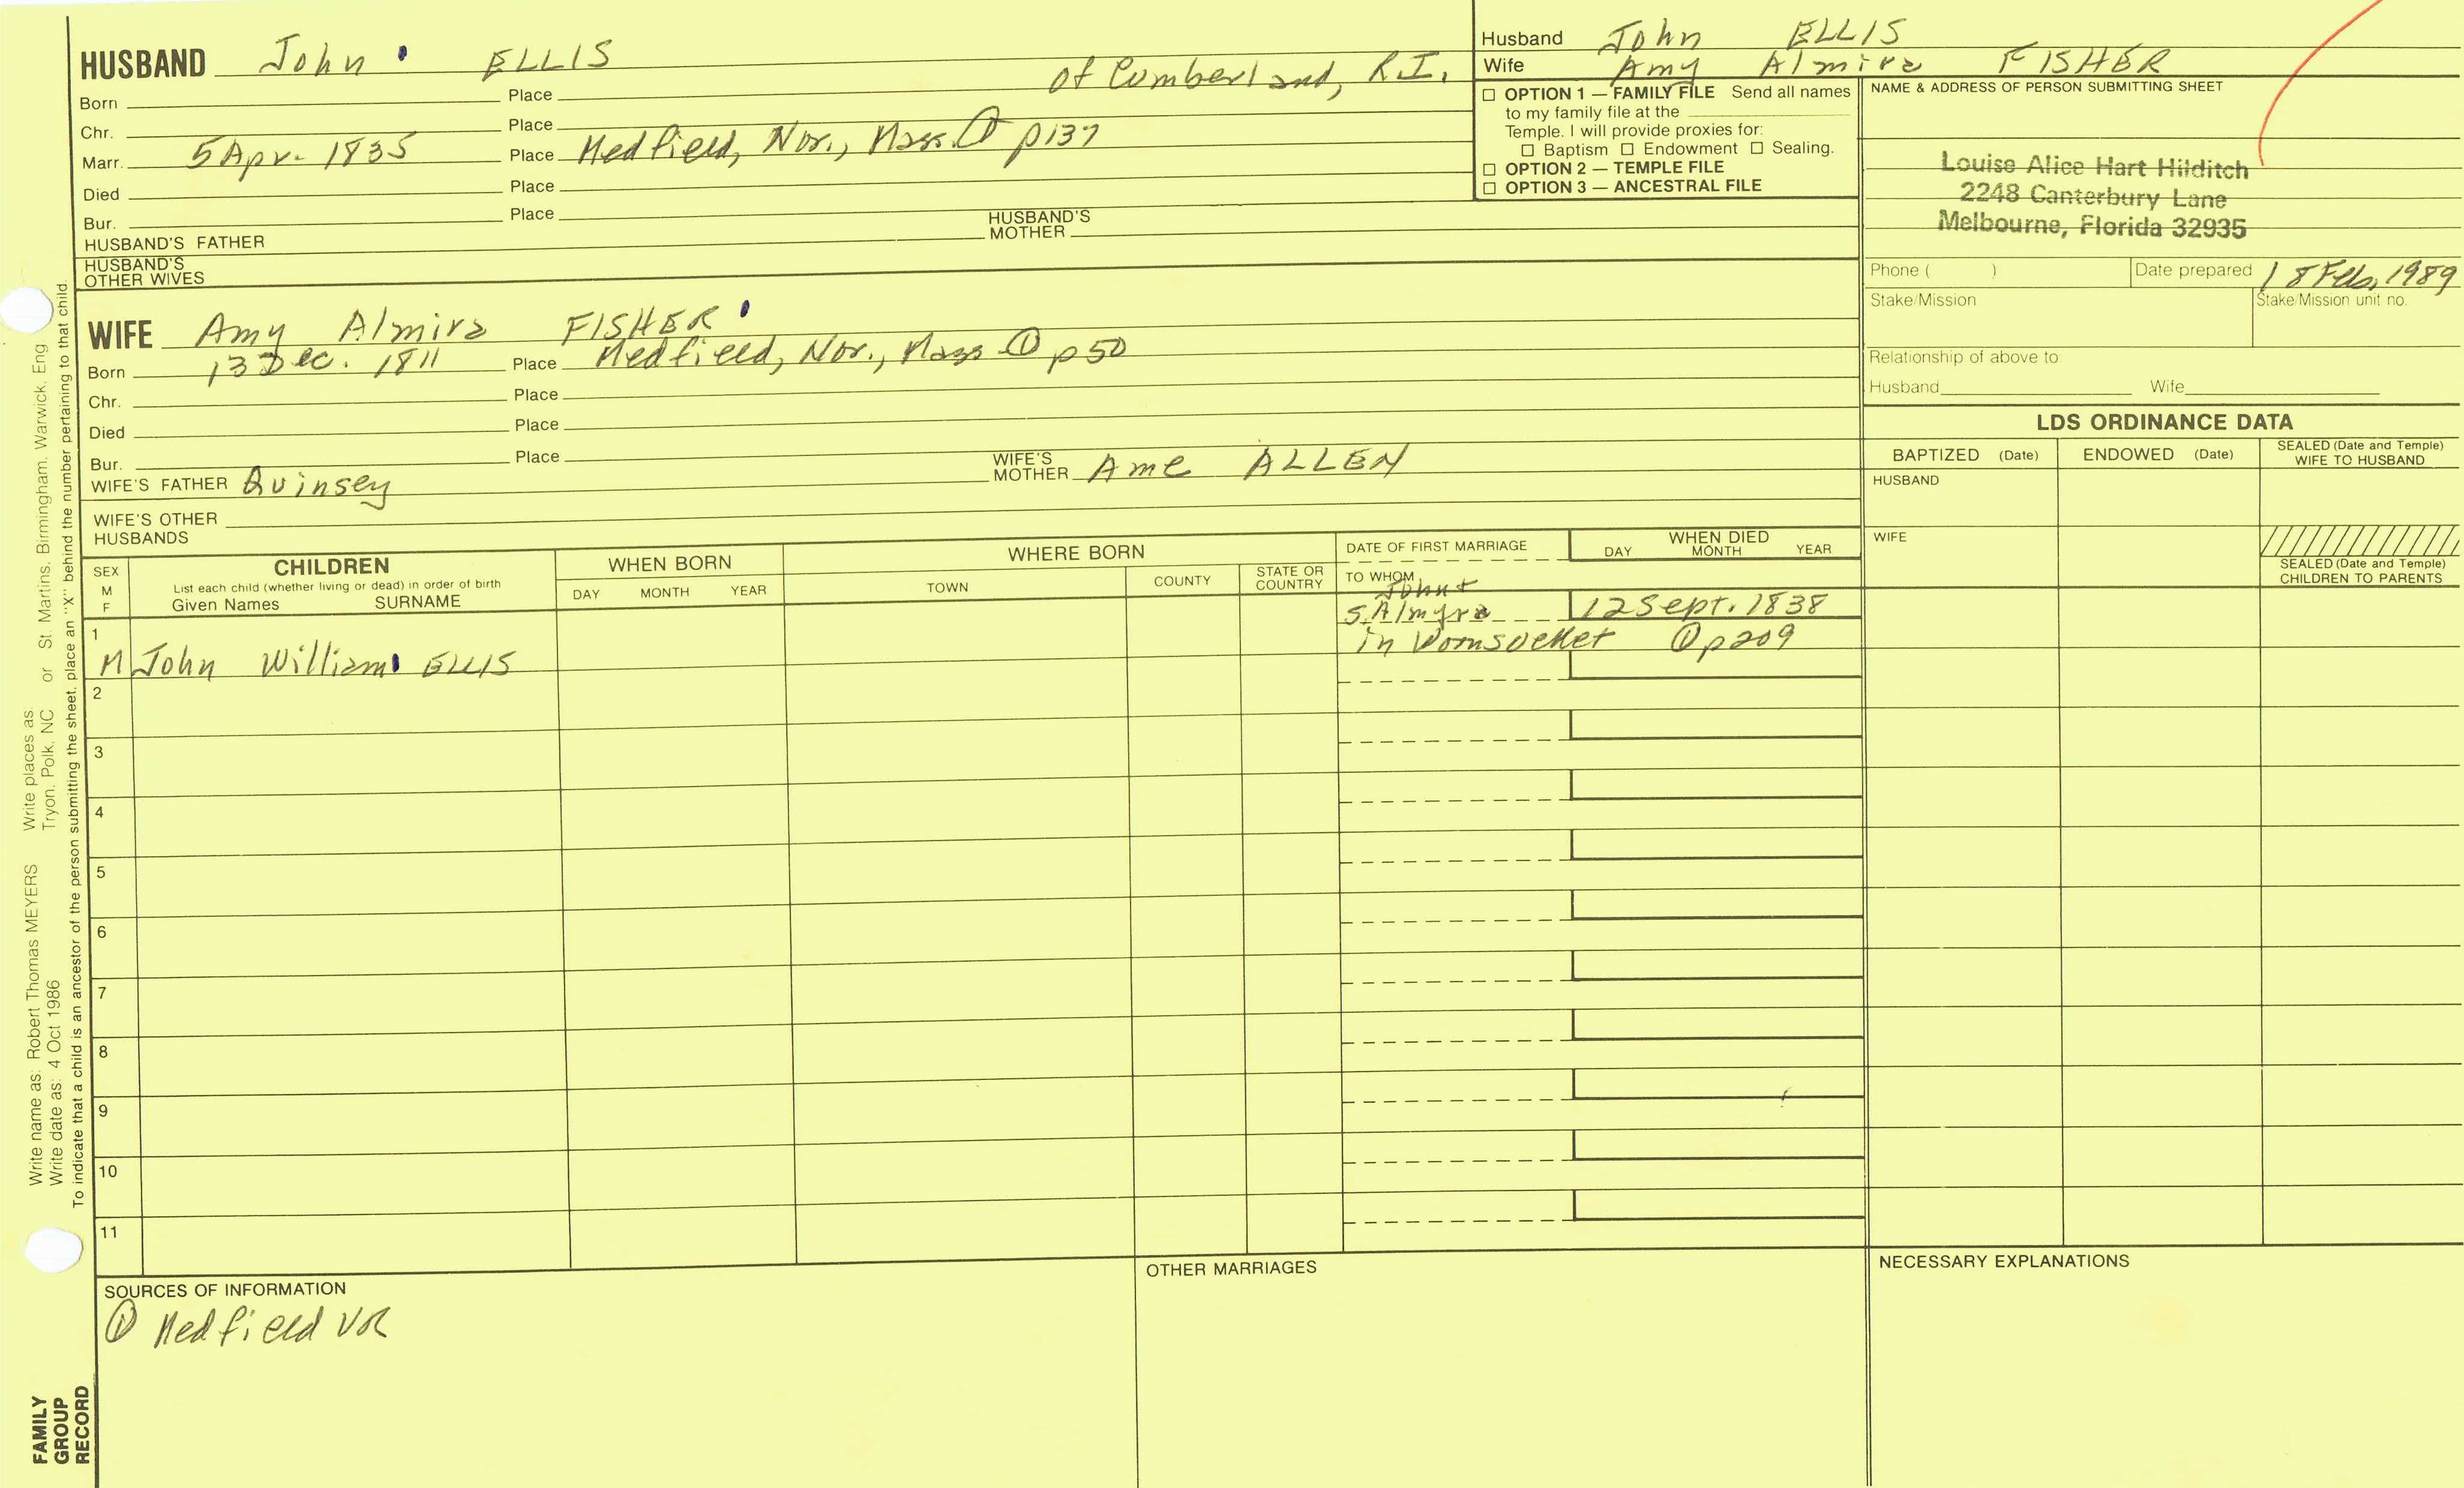 HUSBAND John ELLIS of Cumberland, R.I.
Born Place
Chr. Place
Marr. 5 Apr. 1835 Place Medfield, Nor., Mass. ① p137
Died Place
Bur. Place
HUSBAND'S FATHER HUSBAND'S MOTHER
HUSBAND'S OTHER WIVES
WIFE Amy Almira FISHER
Born 13 Dec. 1811 Place Medfield, Nor., Mass ① p50
Chr. Place
Died Place
Bur. Place
WIFE'S FATHER Quinsey WIFE'S MOTHER Ame ALLEN
WIFE'S OTHER HUSBANDS
Husband John ELLIS
Wife Amy Almira FISHER
☐ OPTION 1 — FAMILY FILE Send all names
to my family file at the
Temple. I will provide proxies for:
☐ Baptism ☐ Endowment ☐ Sealing.
☐ OPTION 2 — TEMPLE FILE
☐ OPTION 3 — ANCESTRAL FILE
NAME & ADDRESS OF PERSON SUBMITTING SHEET
Louise Alice Hart Hilditch
2248 Canterbury Lane
Melbourne, Florida 32935
Phone ( ) Date prepared 18 Feb, 1989
Stake/Mission Stake/Mission unit no.
Relationship of above to:
Husband Wife
LDS ORDINANCE DATA
BAPTIZED (Date) ENDOWED (Date) SEALED (Date and Temple) WIFE TO HUSBAND
HUSBAND
WIFE
SEALED (Date and Temple) CHILDREN TO PARENTS
SEX M F
CHILDREN
List each child (whether living or dead) in order of birth
Given Names SURNAME
WHEN BORN
DAY MONTH YEAR
WHERE BORN
TOWN COUNTY STATE OR COUNTRY
DATE OF FIRST MARRIAGE
TO WHOM
WHEN DIED
DAY MONTH YEAR
John +
S. Almyra 12 Sept. 1838
1 in Womsocket ① p209
M John William ELLIS
2
3
4
5
6
7
8
9
10
11
SOURCES OF INFORMATION
① Medfield VR
OTHER MARRIAGES
NECESSARY EXPLANATIONS
Write name as: Robert Thomas MEYERS Write places as: St. Martins, Birmingham, Warwick, Eng
Write date as: 4 Oct 1986 Tryon, Polk, NC or
To indicate that a child is an ancestor of the person submitting the sheet, place an "X" behind the number pertaining to that child.
FAMILY
GROUP
RECORD